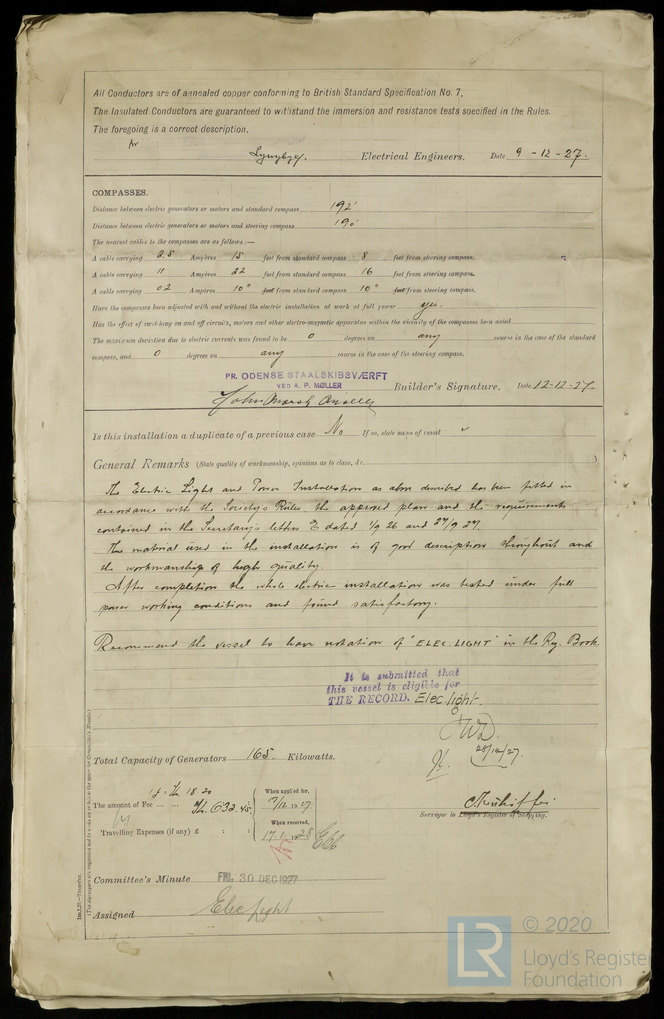 All Conductors are of annealed copper conforming to British Standard Specification No. 7.
The Insulated Conductors are guaranteed to withstand the immersion and resistance tests specified in the Rules.
The foregoing is a correct description.
Electrical Engineers. Date 9-12-27.
COMPASSES.
Distance between electric generators or motors and standard compass 192'
Distance between electric generators or motors and steering compass 190'
The nearest cables to the compasses are as follows:—
A cable carrying 2.8 Ampères 15 feet from standard compass 8 feet from steering compass.
A cable carrying 11 Ampères 22 feet from standard compass 16 feet from steering compass.
A cable carrying 0.2 Ampères 10" feet from standard compass 10" feet from steering compass.
Have the compasses been adjusted with and without the electric installation at work at full power yes.
Has the effect of switching on and off circuits, motors and other electro-magnetic apparatus within the vicinity of the compasses been noted
The maximum deviation due to electric currents was found to be 0 degrees on any course in the case of the standard
compass, and 0 degrees on any course in the case of the steering compass.
PR. ODENSE STAALSKIBSVÆRFT
VED A. P. MØLLER
Builder's Signature. Date 12-12-27.
Is this installation a duplicate of a previous case No If so, state name of vessel
General Remarks (State quality of workmanship, opinions as to class, &c.)
The Electric Light and Power Installation as above described has been fitted in
accordance with the Society's Rules, the approved plan and the requirements
contained in the Secretary's letter E dated 1/9 26 and 27/9 27.
The material used in the installation is of good description throughout and
the workmanship of high quality.
After completion the whole electric installation was tested under full
power working conditions and found satisfactory.
Recommend the vessel to have notation of "ELEC. LIGHT" in the Reg. Book.
It is submitted that
this vessel is eligible for
THE RECORD. Elec. light.
28/12/27.
Total Capacity of Generators 165. Kilowatts.
The amount of Fee ... ... Kr. 632.45
When applied for,
19 27
Travelling Expenses (if any) £ : :
When received,
17.1. 1928
Surveyor to Lloyd's Register of Shipping.
Committee's Minute FRI. 30 DEC 1927
Assigned Elec Light
Im.1,27.—Transfer.
© 2020
LR
Lloyd's Register
Foundation